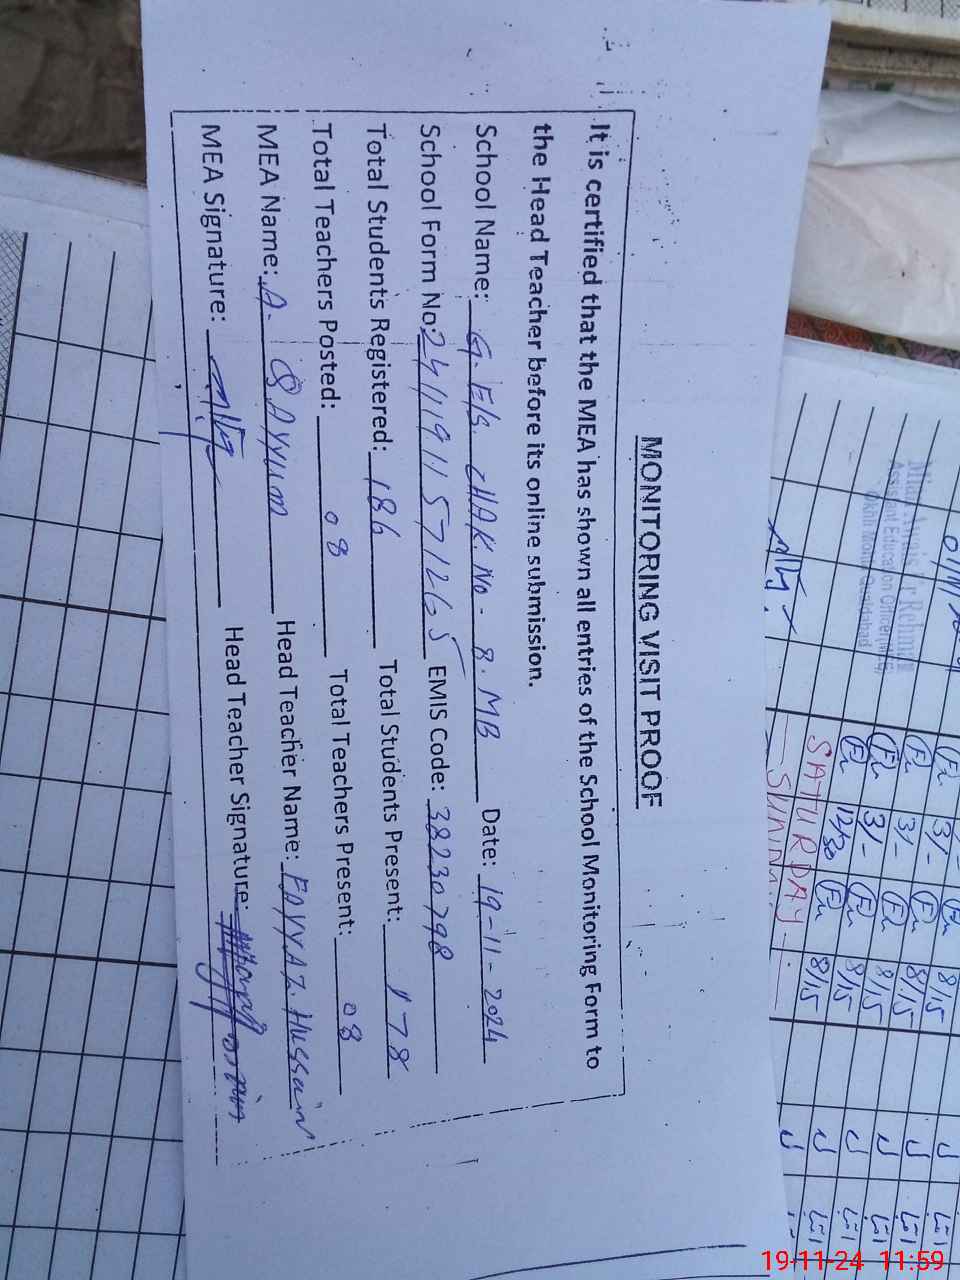 MONITORING VISIT PROOF
It is certified that the MEA has shown all entries of the School Monitoring Form to
the Head Teacher before its online submission.
School Name: G. E/S. CHAK. No. 8. MB Date: 19-11-2024
School Form No: EMIS Code: 38230798
Total Students Registered: 186 Total Students Present: 178
Total Teachers Posted: 08 Total Teachers Present: 08
MEA Name: A. QAYYUM Head Teacher Name: FAYYAZ Hussain
MEA Signature: Head Teacher Signature:
Assistant Education Officer
SATURDAY
3/- 8/15
3/- 8/15
3/- 8/15
12/30 8/15
8/15
19-11-24 11:59